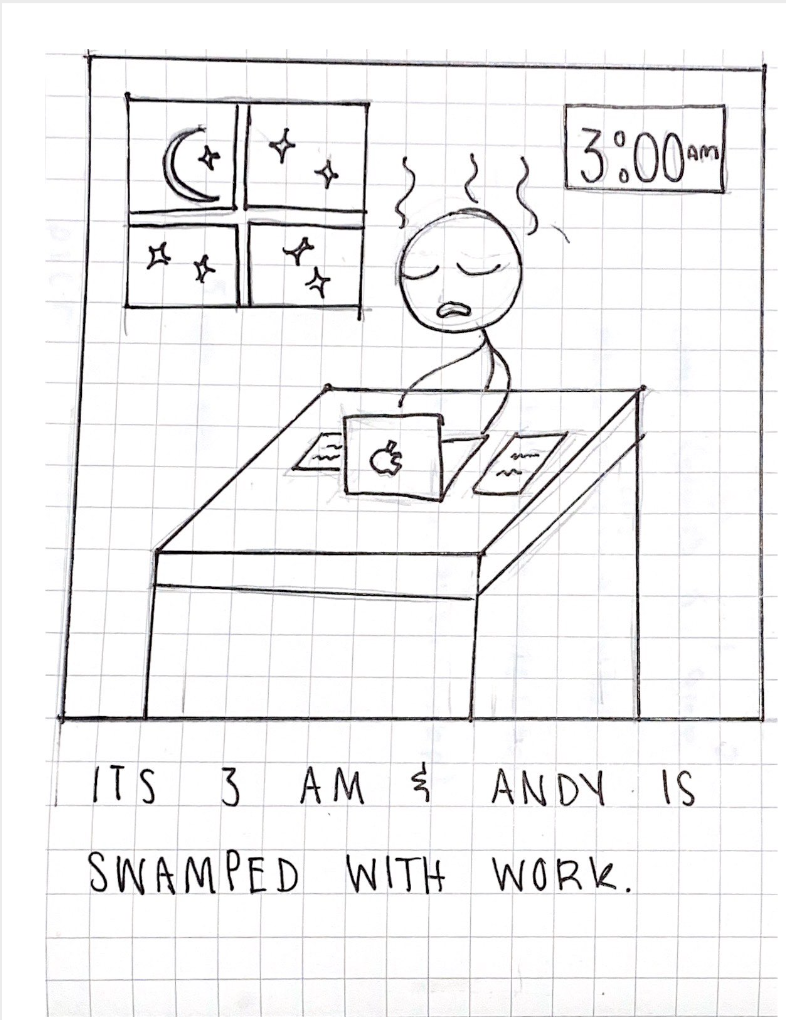 3:00AM
ITS 3 AM & ANDY IS
SWAMPED WITH WORK.